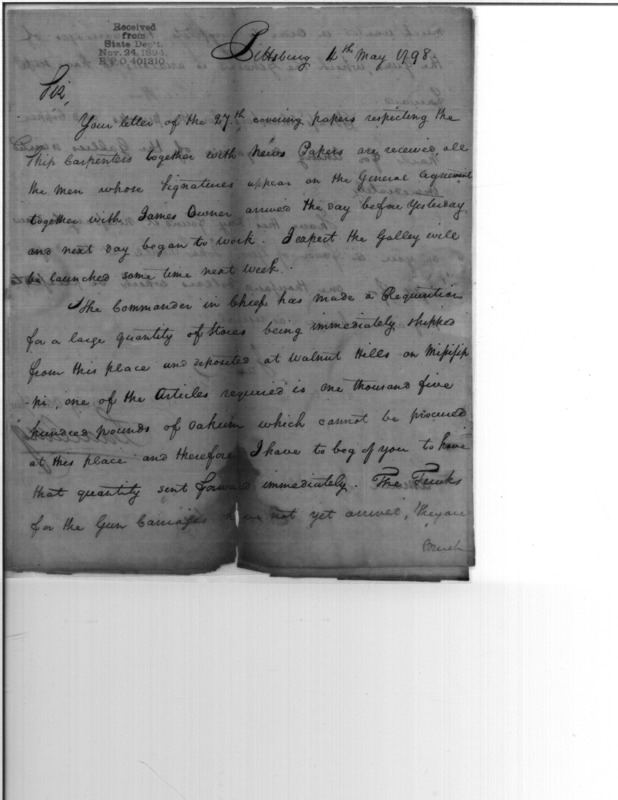 Received
from
State Dep't.
Nov. 24, 1894.
R P O 401310
Pittsburg 4th May 1798.
Sir,
Your letter of the 27th covering papers respecting the
Ship Carpenters together with News Papers are received all
the men whose Signatures appear on the General Agreement
together with James Owner arrived the day before Yesterday
and next day began to work. I expect the Galley will
be launched some time next week.
The Commander in Chief has made a Requisition
for a large quantity of Stores being immediately shipped
from this place and deposited at Walnut Hills on Missisip
-pi, one of the Articles required is one thousand five
hundred pounds of Oakum which cannot be procured
at this place and therefore I have to beg of you to have
that quantity sent forward immediately. The Trucks
for the Gun Carriages have not yet arrived, They are
much